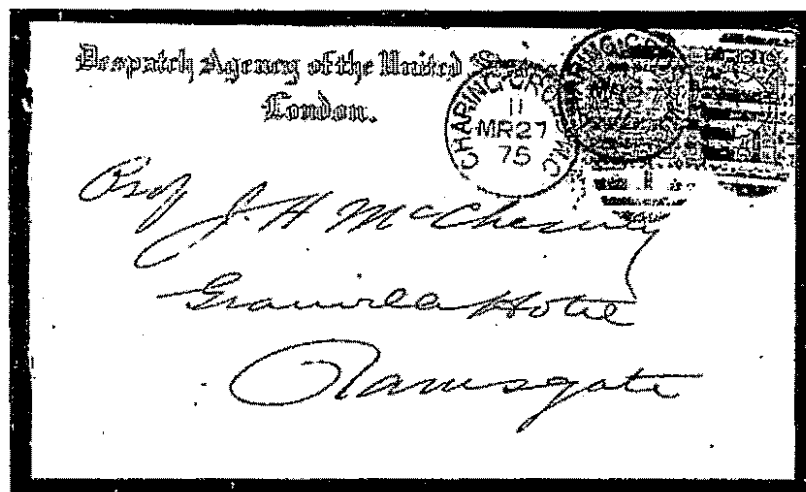 Despatch Agency of the United
London.
CHARING CROSS W.C
11
MR27
75
Prof J. H McChesney
Granville Hotel
Ramsgate